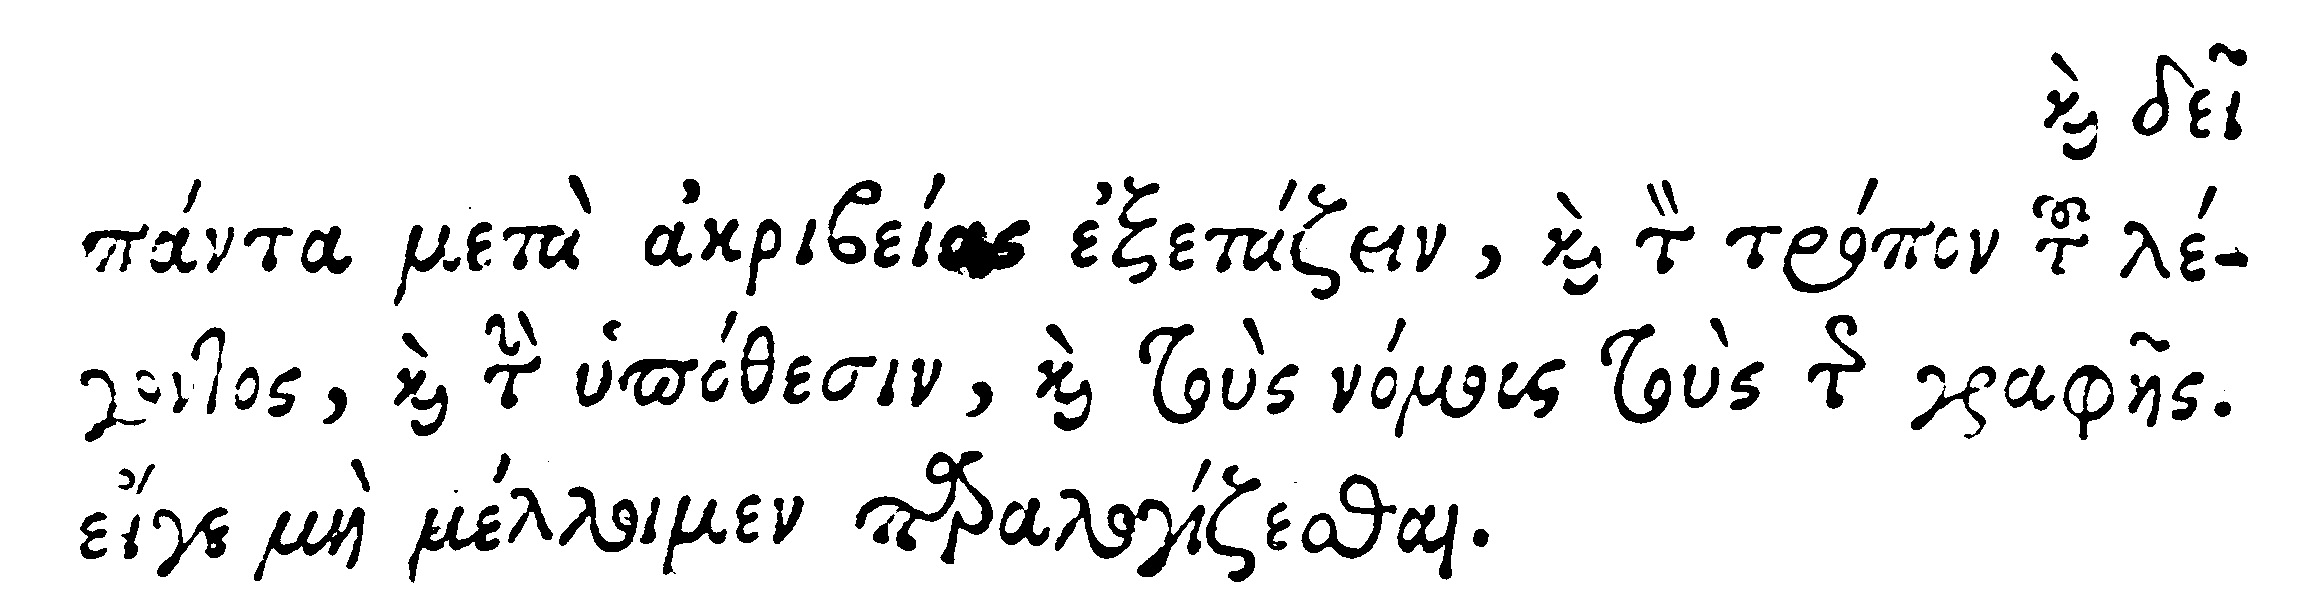 καὶ δεῖ
πάντα μετὰ ἀκριβείας ἐξετάζειν, καὶ τὸν τρόπον τοῦ λέ-
γοντος, καὶ τὴν ὑπόθεσιν, καὶ τοὺς νόμους τοὺς τῆς γραφῆς.
εἴγε μὴ μέλλοιμεν παραλογίζεσθαι.